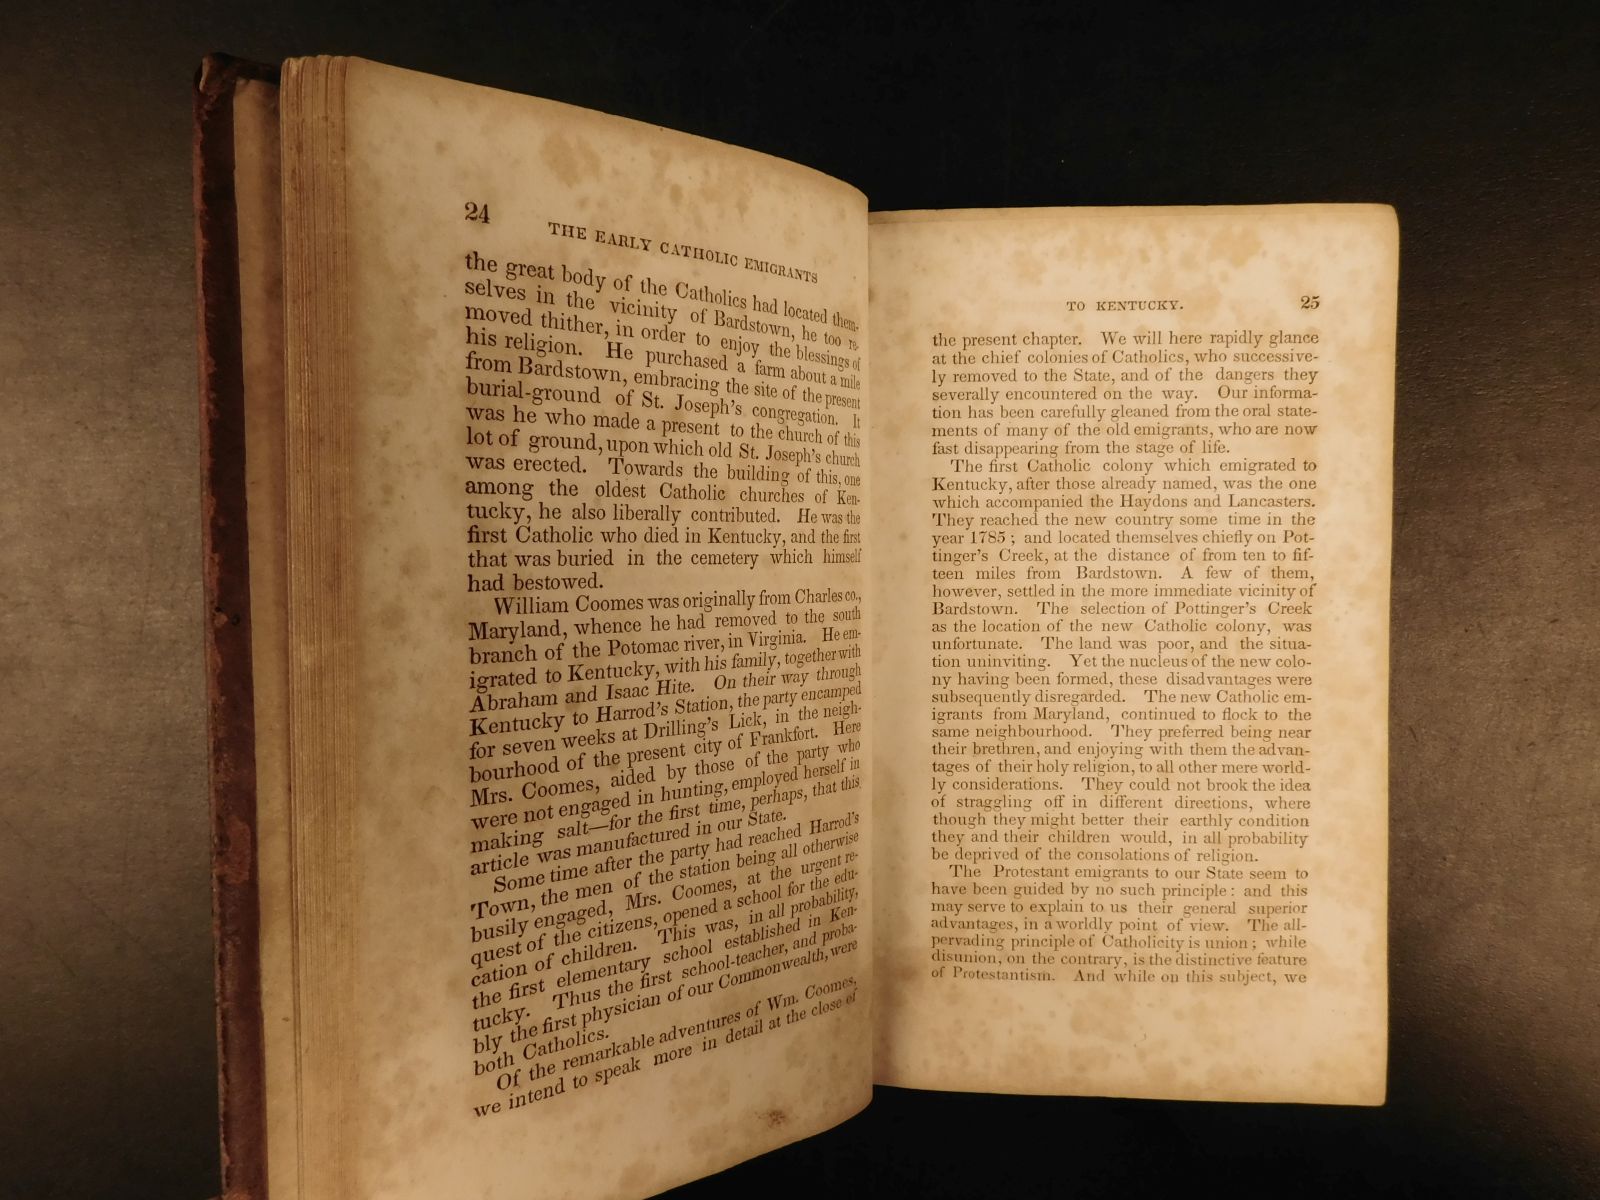 24
THE EARLY CATHOLIC EMIGRANTS
the great body of the Catholics had located them-
selves in the vicinity of Bardstown, he too re-
moved thither, in order to enjoy the blessings of
his religion. He purchased a farm about a mile
from Bardstown, embracing the site of the present
burial-ground of St. Joseph's congregation. It
was he who made a present to the church of this
lot of ground, upon which old St. Joseph's church
was erected. Towards the building of this, one
among the oldest Catholic churches of Ken-
tucky, he also liberally contributed. He was the
first Catholic who died in Kentucky, and the first
that was buried in the cemetery which himself
had bestowed.
William Coomes was originally from Charles co.,
Maryland, whence he had removed to the south
branch of the Potomac river, in Virginia. He em-
igrated to Kentucky, with his family, together with
Abraham and Isaac Hite. On their way through
Kentucky to Harrod's Station, the party encamped
for seven weeks at Drilling's Lick, in the neigh-
bourhood of the present city of Frankfort. Here
Mrs. Coomes, aided by those of the party who
were not engaged in hunting, employed herself in
making salt—for the first time, perhaps, that this
article was manufactured in our State.
Some time after the party had reached Harrod's
Town, the men of the station being all otherwise
busily engaged, Mrs. Coomes, at the urgent re-
quest of the citizens, opened a school for the edu-
cation of children. This was, in all probability,
the first elementary school established in Ken-
tucky. Thus the first school-teacher, and proba-
bly the first physician of our Commonwealth, were
both Catholics.
Of the remarkable adventures of Wm. Coomes,
we intend to speak more in detail at the close of
TO KENTUCKY. 25
the present chapter. We will here rapidly glance
at the chief colonies of Catholics, who successive-
ly removed to the State, and of the dangers they
severally encountered on the way. Our informa-
tion has been carefully gleaned from the oral state-
ments of many of the old emigrants, who are now
fast disappearing from the stage of life.
The first Catholic colony which emigrated to
Kentucky, after those already named, was the one
which accompanied the Haydons and Lancasters.
They reached the new country some time in the
year 1785; and located themselves chiefly on Pot-
tinger's Creek, at the distance of from ten to fif-
teen miles from Bardstown. A few of them,
however, settled in the more immediate vicinity of
Bardstown. The selection of Pottinger's Creek
as the location of the new Catholic colony, was
unfortunate. The land was poor, and the situa-
tion uninviting. Yet the nucleus of the new colo-
ny having been formed, these disadvantages were
subsequently disregarded. The new Catholic em-
igrants from Maryland, continued to flock to the
same neighbourhood. They preferred being near
their brethren, and enjoying with them the advan-
tages of their holy religion, to all other mere world-
ly considerations. They could not brook the idea
of straggling off in different directions, where
though they might better their earthly condition
they and their children would, in all probability
be deprived of the consolations of religion.
The Protestant emigrants to our State seem to
have been guided by no such principle: and this
may serve to explain to us their general superior
advantages, in a worldly point of view. The all-
pervading principle of Catholicity is union; while
disunion, on the contrary, is the distinctive feature
of Protestantism. And while on this subject, we